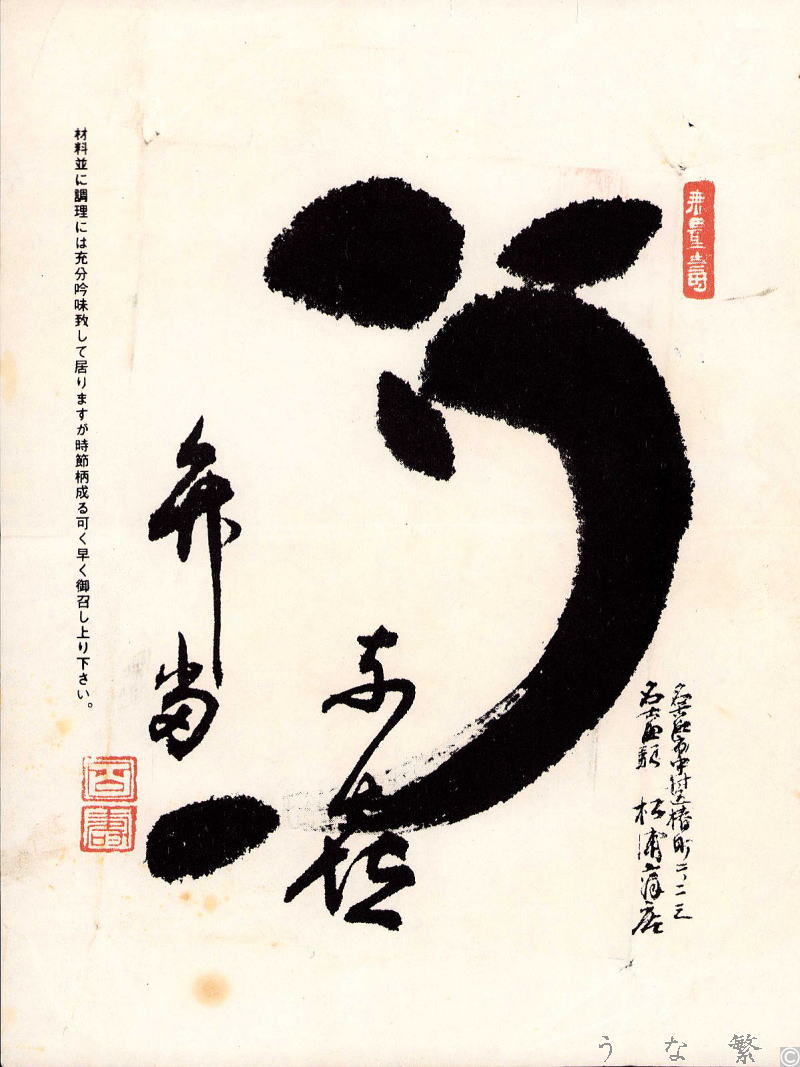 無量壽
名古屋市中村区椿町二、二三
名古屋驛 松浦商店
う
弁当
材料並に調理には充分吟味致して居りますが時節柄成る可く早く御召し上り下さい。
うな繁
©